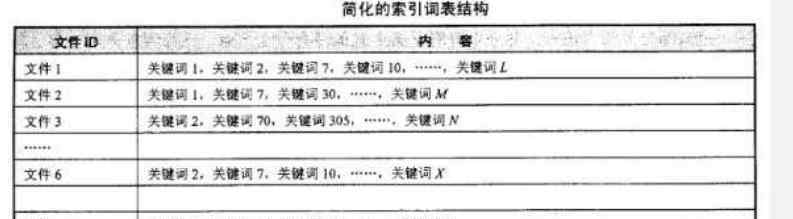 简化的索引词表结构
文件 ID 内 容
文件 1 关键词 1，关键词 2，关键词 7，关键词 10，……，关键词 L
文件 2 关键词 1，关键词 7，关键词 30，……，关键词 M
文件 3 关键词 2，关键词 70，关键词 305，……，关键词 N
……
文件 6 关键词 2，关键词 7，关键词 10，……，关键词 X